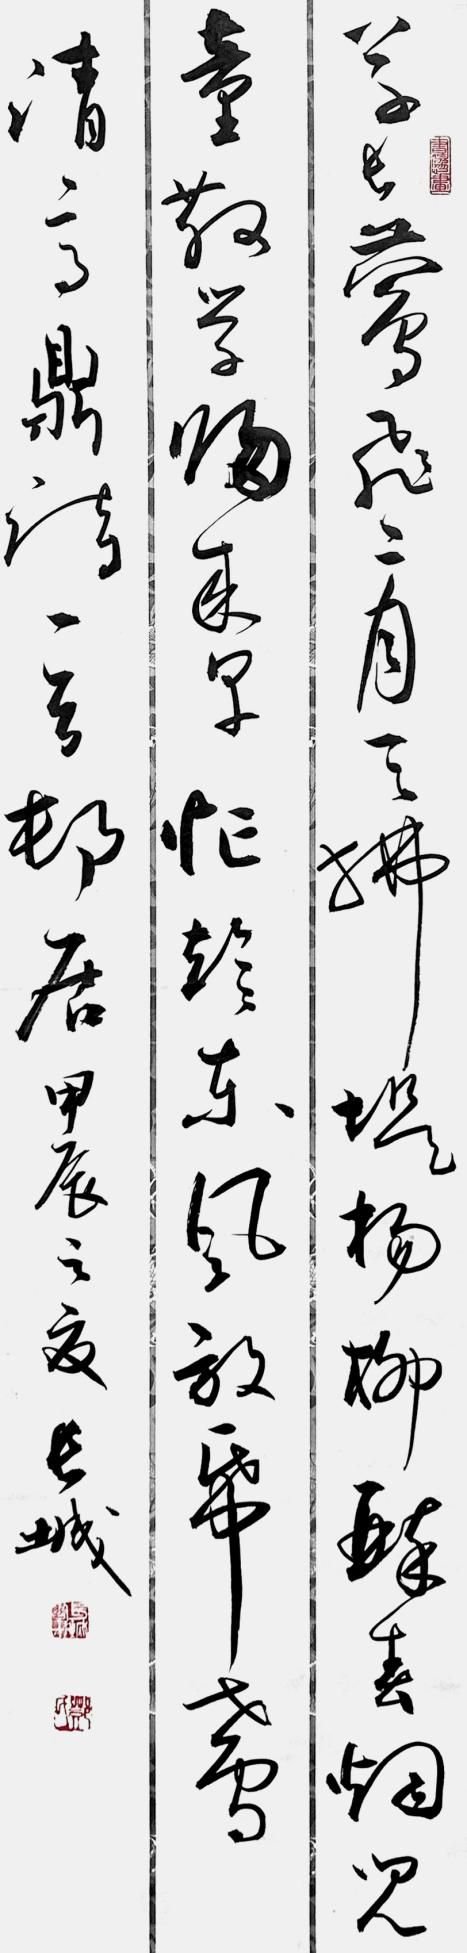 草长莺飞二月天拂堤杨柳醉春烟儿
童散学归来早忙趁东风放帋鸢
清高鼎诗一首邨居甲辰之夏长城